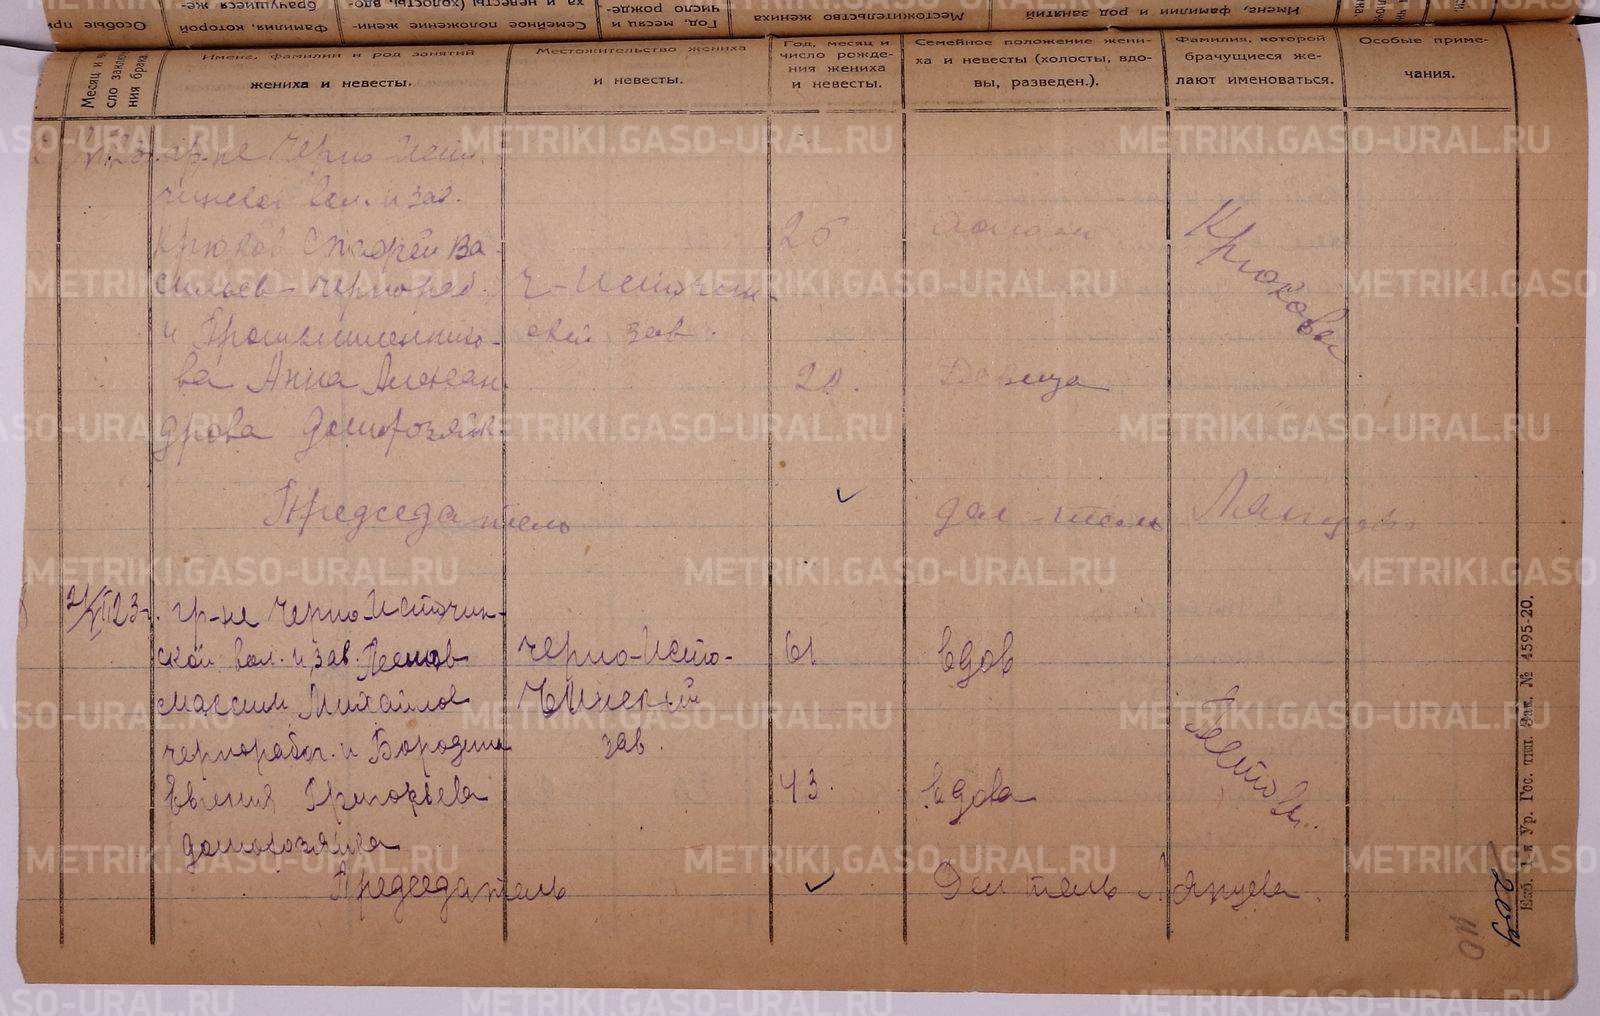 Месяц и чи-
сло заклю-
ния брака
Имена, фамилии и род занятий
жениха и невесты.
Местожительство жениха
и невесты.
Год, месяц и
число рожде-
ния жениха
и невесты.
Семейное положение жени-
ха и невесты (холосты, вдо-
вы, разведен.).
Фамилия, которой
брачущиеся же-
лают именоваться.
Особые приме-
чания.
гр-не Черно Исто-
чинской вол. и зав.
Крюков Андрей Ва-
сильев чернораб.
и Промышленнико-
ва Анна Алексан-
дрова домохозяйк
Ч-Источин-
ский зав.
26
холост
20.
Девица
Крюковы
Председатель
21/VII 23 г. гр-не Черно Источин-
ской вол. и зав. Пестов
Максим Михайлов
чернорабоч. и Бородина
Евгения Григорьева
домохозяйка
Черно-Исто-
чинский
зав.
61
вдов
43.
вдова
Пестовы.
Председатель
Екб. 1-я Ур. Гос. тип. Зак. № 4595-20.
110
METRIKI.GASO-URAL.RU